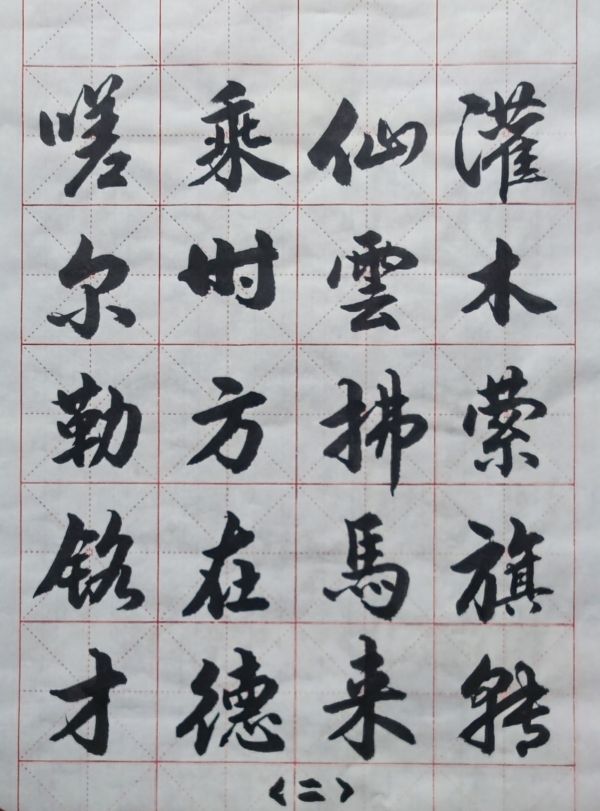 灌木萦旗转
仙雲拂馬来
乘时方在德
嗟尔勒铭才
〈二〉